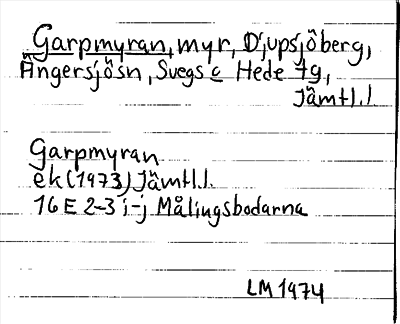 Garpmyran, myr, Djupsjöberg,
Ängersjösn, Svegs o Hede tg,
Jämtl.l
Garpmyran
ek (1973) Jämtl.l.
16 E 2-3 i-j Målingsbodarna
LM 1974